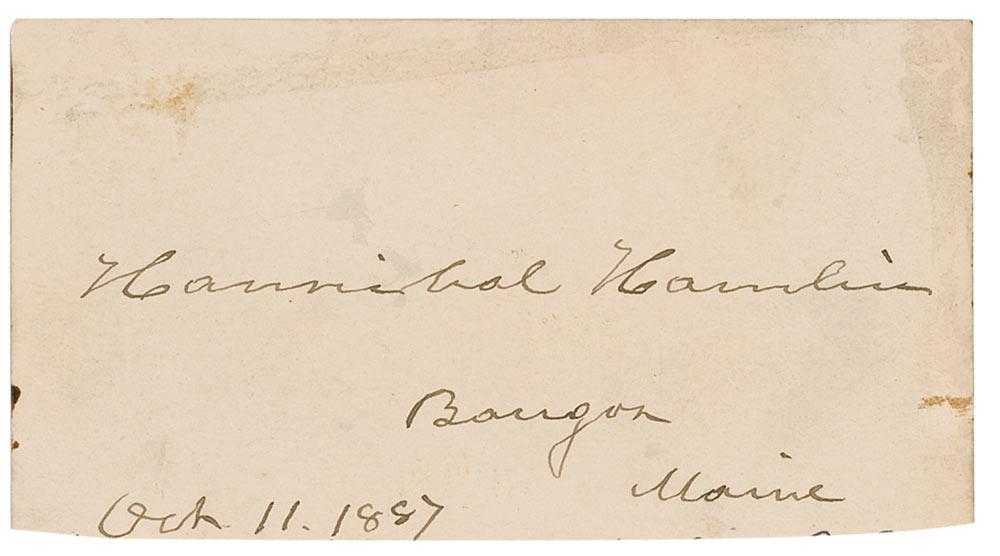 Hannibal Hamlin
Bangor
Maine
Oct. 11. 1887